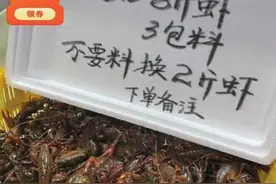 领券
斤虾
3包料
不要料换2斤虾
下单备注